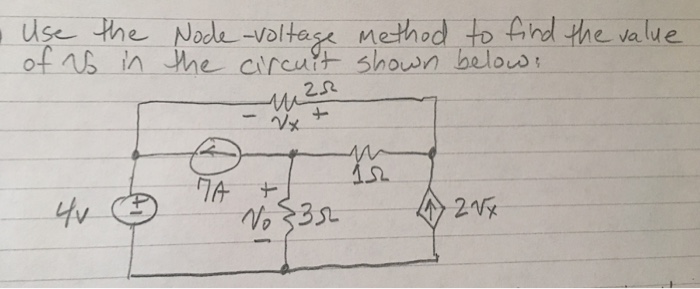 Use the Node-voltage method to find the value
of Vo in the circuit shown below:
2Ω
- Vx +
7A
1Ω
4v
+
-
+
Vo
-
3Ω
2Vx